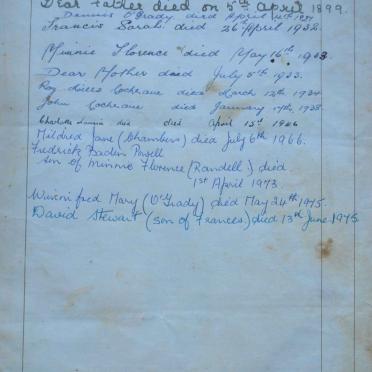 Dear Father died on 5th April 1899.
Dennis O'Grady died April 4th 1931
Francis Sarah died 26th April 1932.
Minnie Florence died May 16th 1933.
Dear Mother died July 5th 1933.
Roy Cochrane died March 12th 1934
John Cochrane died January 17th, 1938.
Charlotte died April 15th 1966
Mildred Jane (Chambers) died July 6th 1966.
Fredrick Baden Powell
son of Minnie Florence (Randell.) died
1st April 1973
Winnifred Mary (O'Grady) died May 24th 1975.
David Stewart (son of Frances.) died 13th June 1975